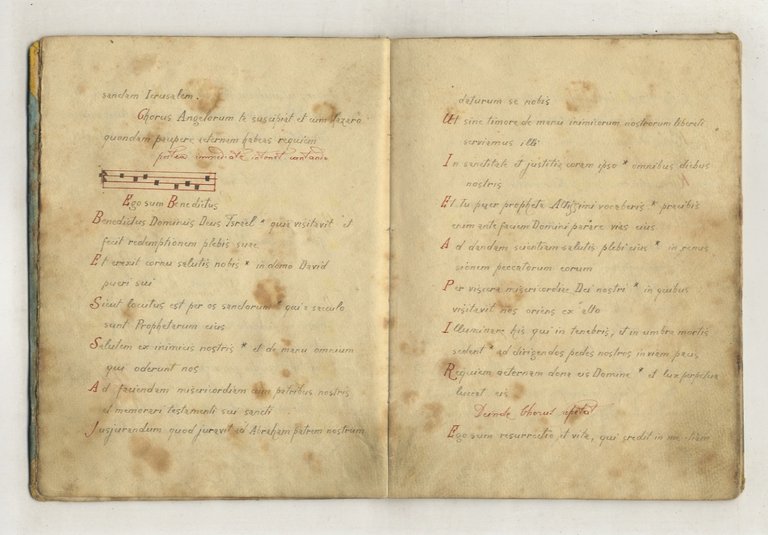 sanctam Ierusalem.
Chorus Angelorum te suscipiat et cum Lazaro
quondam paupere aeternam habeas requiem
postea immediate intonet cantaris
Ego sum Benedictus
Benedictus Dominus Deus Israel * quia visitavit et
fecit redemptionem plebis suae
Et erexit cornu salutis nobis * in domo David
pueri sui
Sicut locutus est per os sanctorum * qui a saeculo
sunt Prophetarum eius
Salutem ex inimicis nostris * et de manu omnium
qui oderunt nos
Ad faciendam misericordiam cum patribus nostris
et memorari testamenti sui sancti
Jusjurandum quod juravit ad Abraham patrem nostrum
daturum se nobis
Ut sine timore de manu inimicorum nostrorum liberati
serviamus illi
In sanctitate et justitia coram ipso * omnibus diebus
nostris
Et Tu puer propheta Altissimi vocaberis * praeibis
enim ante faciem Domini parare vias eius
Ad dandam scientiam salutis plebi eius * in remis
sionem peccatorum eorum
Per viscera misericordiae Dei nostri * in quibus
visitavit nos oriens ex alto
Illuminare his qui in tenebris, et in umbra mortis
sedent * ad dirigendos pedes nostros in viam pacis
Requiem aeternam dona eis Domine * et lux perpetua
luceat eis
Deinde Chorus repetat
Ego sum resurrectio et vita, qui credit in me etiam